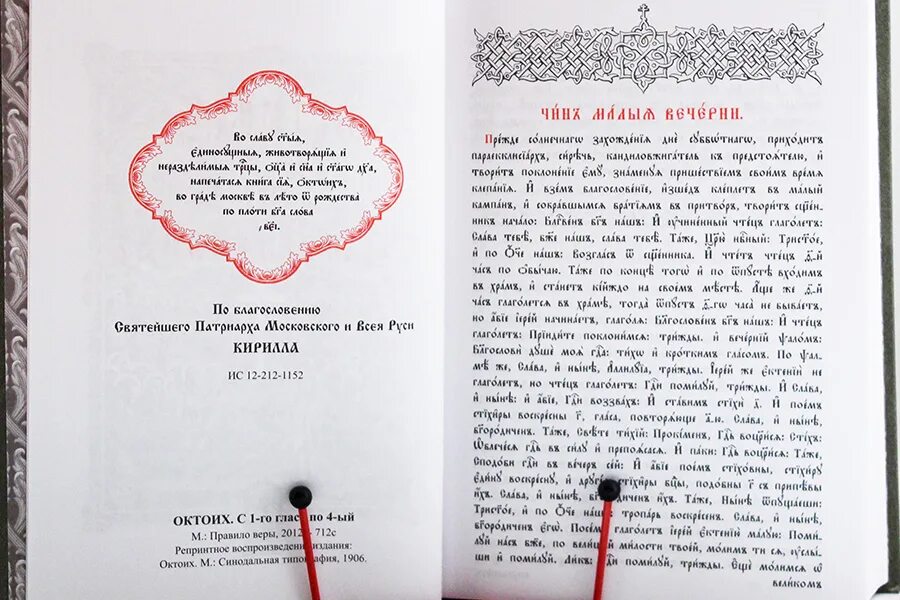 Во славу ст҃ыѧ,
є҆диносꙋщныѧ, животворѧщїѧ и҆
нераздѣлимыѧ трⷪ҇цы, ѻ҆ц҃а̀ и҆ сн҃а и҆ ст҃а́гѡ дх҃а,
напечатасѧ книга сїѧ̀, ѻ҆ктѡихъ,
во градѣ москвѣ въ лѣто ѿ рождества
по плоти бг҃а слова
҂вє҃і.
По благословению
Святейшего Патриарха Московского и Всея Руси
КИРИЛЛА
ИС 12-212-1152
ОКТОИХ. С 1-го глас по 4-ый
М.: Правило веры, 201 - 712с
Репринтное воспроизведени издания:
Октоих. М.: Синодальная типография, 1906.
ЧИ́НЪ МА́ЛЫѦ ВЕЧЕ́РНИ.
Пре́жде со́лнечнагѡ захожде́нїѧ днѐ сꙋббѡ́тнагѡ, прихо́дитъ
параекклисїа́рхъ, си́рѣчь, кандиловжига́тель къ предстоѧ́телю, и҆
твори́тъ поклоне́нїе є҆мꙋ̀, зна́менꙋѧ прише́ствїемъ свои́мъ вре́мѧ
клепа́нїѧ. И҆ взе́мъ благослове́нїе, и҆зше́дъ кле́плетъ въ ма́лый
кампа́нъ, и҆ собра́вшымсѧ бра́тїѧмъ въ притво́ръ, твори́тъ сщ҃е́н-
никъ нача́ло: Бл҃гве́нъ бг҃ъ на́шъ: И҆ ᲂу҆чине́нный чте́цъ глаго́летъ:
Сла́ва тебѣ̀, бж҃е на́шъ, сла́ва тебѣ̀. Та́же, Цр҃ю̀ нбⷭ҇ный: Трист҃о́е,
и҆ по Ѻ҆́ч҃е на́шъ: Возгла́съ ѿ сщ҃е́нника. И҆ чте́тъ чте́цъ ѳ҃-й
ча́съ по ѻ҆бы́чаю. Та́же по концѣ̀ тогѡ̀ и҆ по ѿпꙋ́стѣ вхо́димъ
въ хра́мъ, и҆ ста́нетъ кі́йждо на свое́мъ мѣ́стѣ. А҆́ще же ѳ҃-й
ча́съ глаго́летсѧ въ хра́мѣ, тогда̀ ѿпꙋ́стъ ѳ҃-гѡ часа̀ не быва́етъ,
но а҆́бїе і҆ере́й начина́етъ, глаго́лѧ: Благослове́нъ бг҃ъ на́шъ: И҆ чте́цъ
глаго́летъ: Прїиди́те поклони́мсѧ: три́жды. и҆ вече́рнїй ѱало́мъ:
Благословѝ дꙋшѐ моѧ̀ гдⷭ҇а: ти́хѡ и҆ кро́ткимъ гла́сомъ. По ѱал-
мѣ́ же, Сла́ва, и҆ ны́нѣ, А҆ллилꙋ́їа, три́жды. І҆ере́й же є҆ктенїѝ не
глаго́летъ, но чте́цъ глаго́летъ: Гдⷭ҇и поми́лꙋй, три́жды. И҆ Сла́ва,
и҆ ны́нѣ: и҆ а҆́бїе, Гдⷭ҇и воззва́хъ: И҆ ста́вимъ стїхѝ д҃. И҆ пое́мъ
стїхи̑ры воскрⷭ҇ны г҃, гла́са, повторѧ́юще а҃-ю. Сла́ва, и҆ ны́нѣ,
бг҃оро́диченъ. Та́же, Свѣ́те ти́хїй: Проки́менъ, Гдⷭ҇ь воцр҃и́сѧ: Сті́хъ:
Ѡ҆блече́сѧ гдⷭ҇ь въ си́лꙋ и҆ препоѧ́сасѧ. И҆ па́ки: Гдⷭ҇ь воцр҃и́сѧ: Та́же,
Сподо́би гдⷭ҇и въ ве́черъ се́й: И҆ а҆́бїе пое́мъ стїхѡ́вны, стїхи́рꙋ
є҆ди́нꙋ воскре́снꙋ, и҆ др стїхи̑ры бц҃ы, подѡ́бны г҃ съ припѣ́вы
и҆́хъ. Сла́ва, и҆ ны́нѣ, бг҃оро́диченъ и҆́хъ. Та́же, Ны́нѣ ѿпꙋща́еши:
Трист҃о́е, и҆ по Ѻ҆́ч҃е на́шъ: тропа́рь воскре́сенъ. Сла́ва, и҆ ны́нѣ,
бг҃оро́диченъ є҆гѡ̀. Посе́мъ глаго́летъ і҆ере́й є҆ктенїю̀ ма́лꙋю: Поми́-
лꙋй на́съ бж҃е, по вели́цѣй ми́лости твое́й, мо́лимъ ти сѧ, ᲂу҆слы́-
ши и҆ поми́лꙋй. Ли́къ: Гдⷭ҇и поми́лꙋй, три́жды. Є҆щѐ мо́лимсѧ ѡ҆
вели́комъ